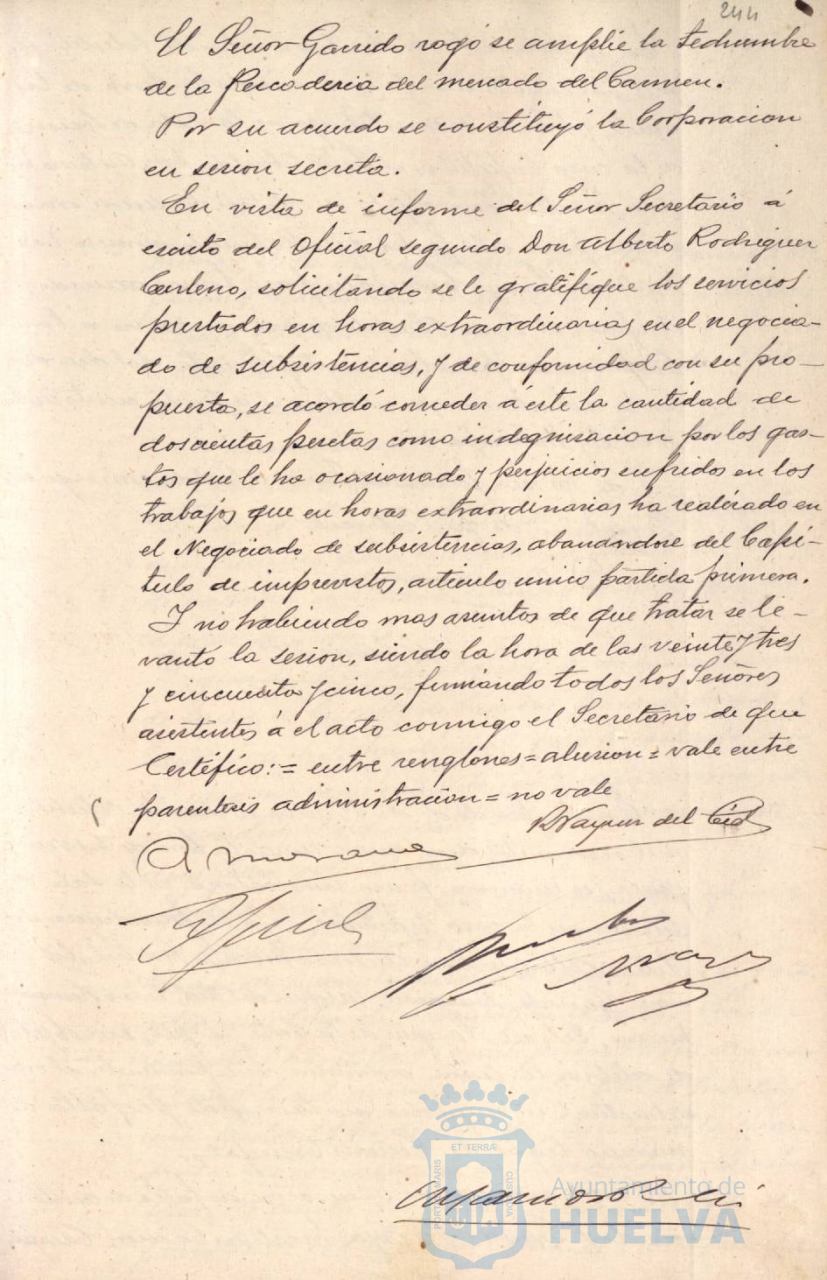 244
El Señor Garrido rogó se amplie la techumbre
de la Pescaderia del mercado del Carmen.
Por su acuerdo se constituyó la Corporacion
en sesion secreta.
En vista de informe del Señor Secretario á
escrito del Oficial segundo Don Alberto Rodriguez
solicitando se le gratifique los servicios
prestados en horas extraordinarias en el negocia-
do de subsistencias, y de conformidad con su pro-
puesta, se acordó conceder á éste la cantidad de
doscientas pesetas como indegnisacion por los gas-
tos que le ha ocasionado y perjuicios sufridos en los
trabajos que en horas extraordinarias ha realizado en
el Negociado de subsistencias, abanandose del Capi-
tulo de imprevistos, articulo unico partida primera.
Y no habiendo mas asuntos de que tratar se le-
vantó la sesion, siendo la hora de las veinte y tres
y cincuenta y cinco, firmando todos los Señores
asistentes á el acto conmigo el Secretario de que
Certifico: = entre renglones = alusion = vale entre
parentesis administracion = no vale
del Cid
PORTUS MARIS
ET TERRÆ
CUSTODIA
Ayuntamiento de
HUELVA